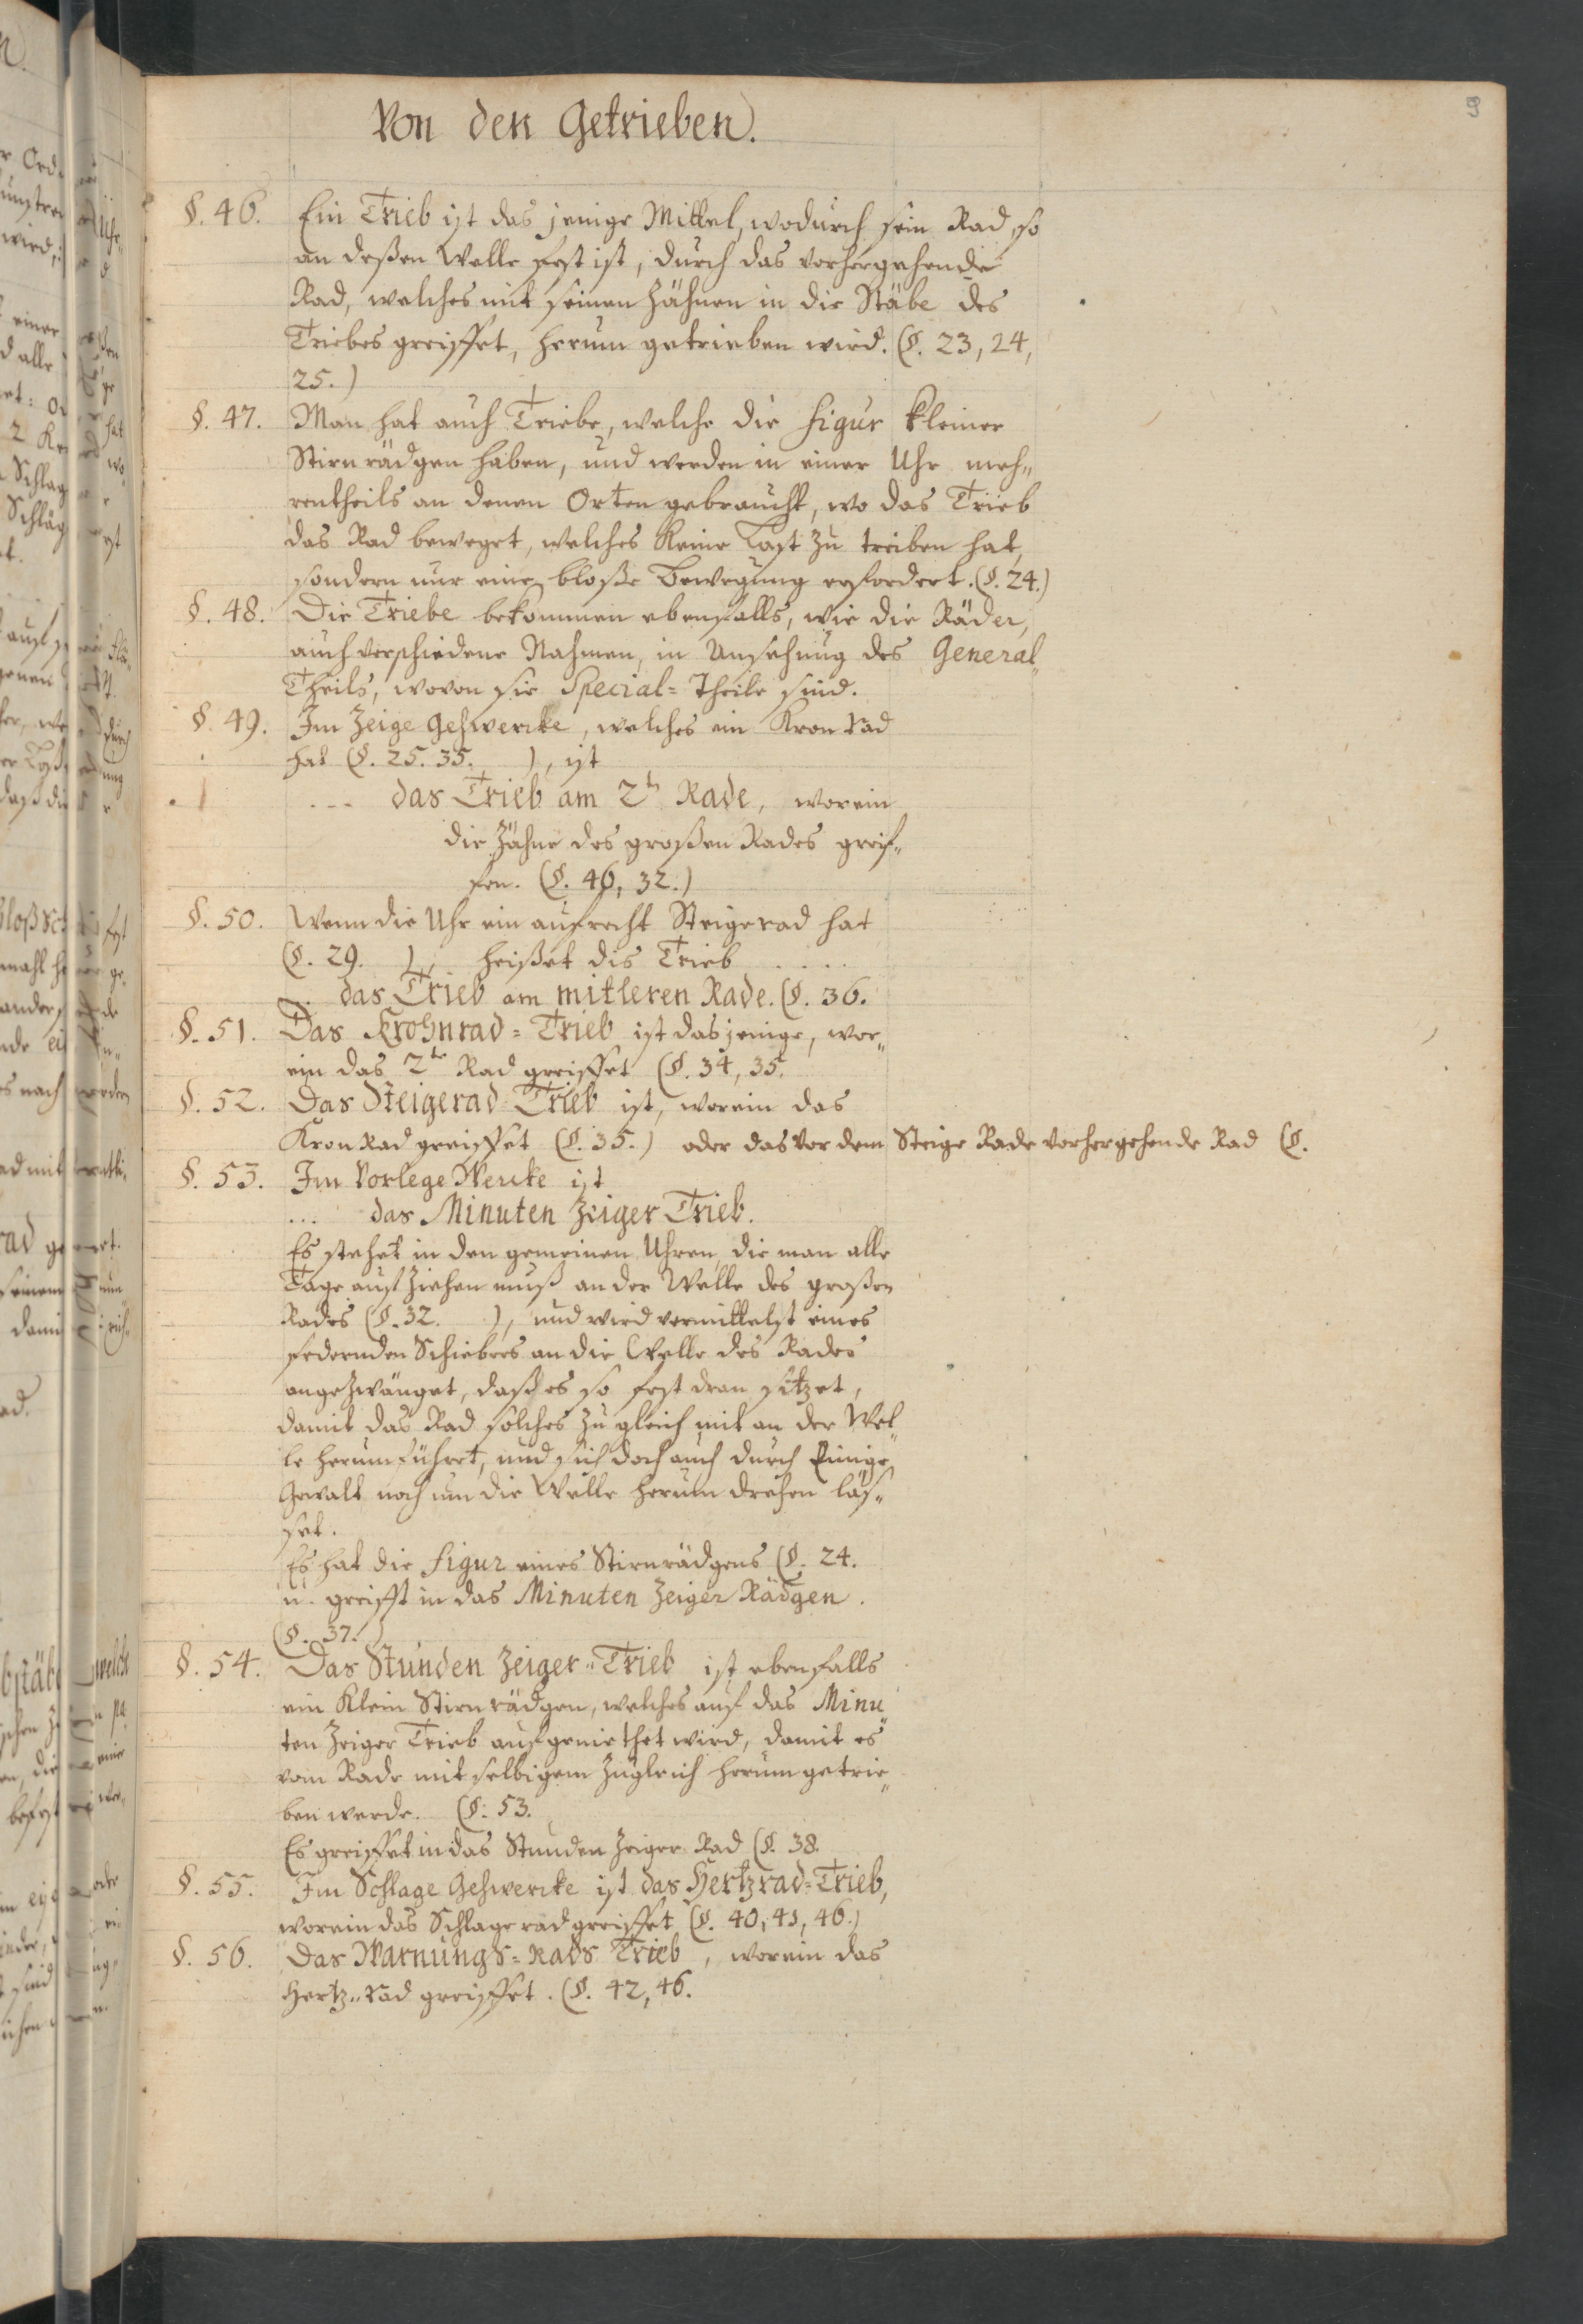 9
Von den Getrieben.
§. 46. Ein Trieb ist das jenige Mittel, wodurch sein Rad, so
an deßen Welle fest ist, durch das vorhergehende
Rad, welches mit seinen Zähnen in die Stäbe des
Triebes greiffet, herum getrieben wird. (§. 23, 24,
25.)
§. 47. Man hat auch Triebe, welche die Figur kleiner
Stirnrädgen haben, und werden in einer Uhr meh„
rentheils an denen Orten gebraucht, wo das Trieb
das Rad beweget, welches keine Last zu treiben hat,
sondern nur eine bloße Bewegung erfordert. (§. 24.)
§. 48. Die Triebe bekommen ebenfalls, wie die Räder,
auch verschiedene Nahmen, in Ansehung des General„
Theils, wovon sie Special= Theile sind.
§. 49. Im Zeige Gehwercke, welches ein Kron Rad
hat (§. 25. 35. ), ist
... das Trieb am 2t Rade, worein
die Zähne des großen Rades greif„
fen. (§. 46, 32.)
§. 50. Wenn die Uhr ein aufrecht Steigerad hat
(§. 29. ), heißet dis Trieb ....
.. das Trieb am mitleren Rade. (§. 36.
§. 51. Das Krohnrad= Trieb ist dasjenige, wor„
ein das 2te Rad greiffet (§. 34, 35.
§. 52. Das Steigerad Trieb ist, worein das
Kron Rad greiffet (§. 35.) oder das vor dem Steige Rade vorhergehende Rad (§.
§. 53. Im Vorlege Wercke ist
... das Minuten Zeiger Trieb.
Es stehet in den gemeinen Uhren, die man alle
Tage auf ziehen muß an der Welle des großen
Rades (§. 32. ), und wird vermittelst eines
federnden Schiebers an die Welle des Rades
angezwänget, daß es so fest dran sitzet,
damit das Rad solches zu gleich mit an der Wel„
le herumführet, und sich doch auch durch Einige
Gewalt noch um die Welle herum drehen läs„
set.
Es hat die Figur eines Stirnrädgens (§. 24.
u. greifft in das Minuten Zeiger Rädgen.
(§. 37.)
§. 54. Das Stunden Zeiger„ Trieb ist ebenfalls
ein Klein Stirnrädgen, welches auf das Minu„
ten Zeiger Trieb aufgeniethet wird, damit es
vom Rade mit selbigem zugleich herum getrie„
ben werde. (§. 53.
Es greiffet in das Stunden Zeiger Rad (§. 38.
§. 55. Im Schlage Gehwercke ist das Hertzrad= Trieb,
worein das Schlagerad greiffet (§. 40, 41, 46.)
§. 56. Das Warnungs= Rads Trieb, worein das
Hertz„ Rad greiffet. (§. 42, 46.